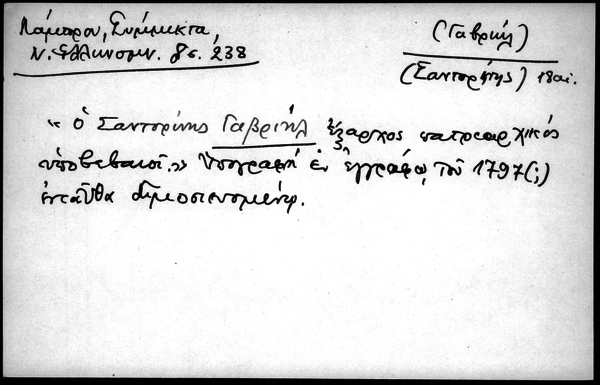 Λάμπρου, Σύμμικτα,
Ν. Ελληνομν. 8 σ. 238
(Γαβριήλ)
(Σαντορίνης) 18 αἰ.
« ὁ Σαντορίνης Γαβριήλ ἔξαρχος πατριαρχικός
ὑποβεβαιοῖ.» Ὑπογραφή ἐν ἐγγράφῳ τοῦ 1797(;)
ἐνταῦθα δημοσιευομένῳ.